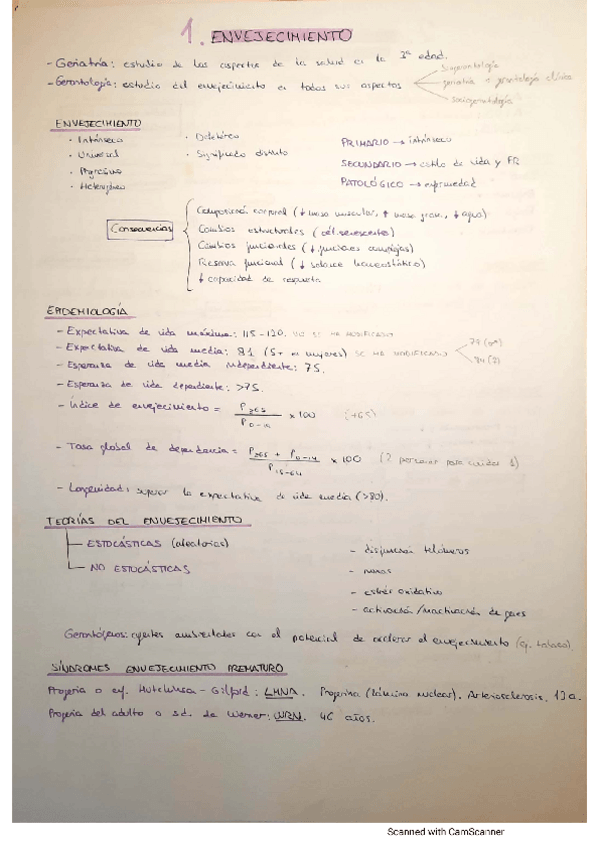 1. ENVEJECIMIENTO
- Geriatría: estudio de los aspectos de la salud en la 3ª edad.
- Gerontología: estudio del envejecimiento en todos sus aspectos
geriatría o gerontología clínica
sociogerontología
ENVEJECIMIENTO
· Intrínseco
· Universal
· Progresivo
· Heterogéneo
· Deletéreo
· Significado distinto
PRIMARIO → intrínseco
SECUNDARIO → estilo de vida y FR
PATOLÓGICO → enfermedad
Consecuencias
Composición corporal (↓ masa muscular, ↑ masa grasa, ↓ agua)
Cambios estructurales (cél. senescente)
Cambios funcionales (↓ funciones complejas)
Reserva funcional (↓ balance homeostático)
↓ capacidad de respuesta
EPIDEMIOLOGÍA
- Expectativa de vida máxima: 115-120. NO SE HA MODIFICADO
- Expectativa de vida media: 81 (5+ en mujeres) SE HA MODIFICADO
79 (♂)
84 (♀)
- Esperanza de vida media independiente: 75.
- Esperanza de vida dependiente: >75.
- Índice de envejecimiento = P≥65 / P0-14 × 100 (+65)
- Tasa global de dependencia = P≥65 + P0-14 / P15-64 × 100 (2 personas para cuidar 1)
- Longevidad: superar la expectativa de vida media (>80).
TEORÍAS DEL ENVEJECIMIENTO
ESTOCÁSTICAS (aleatorias)
NO ESTOCÁSTICAS
- disfunción telómeros
- estrés oxidativo
- activación/inactivación de genes
Gerontógenos: agentes ambientales con el potencial de acelerar el envejecimiento (ej. tabaco).
SÍNDROMES ENVEJECIMIENTO PREMATURO
Progeria o enf. Hutchinson - Gilford: LMNA. Progerina (lámina nuclear). Arteriosclerosis. 13 a.
Progeria del adulto o sd. de Werner: WRN. 46 años.
Scanned with CamScanner